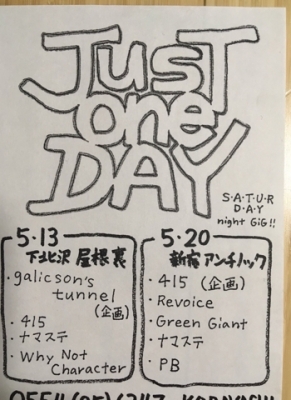 JUST
one
DAY
S・A・T・U・R
D・A・Y
night GiG!!
5・13
下北沢 屋根裏
・galicson's
tunnel
(企画)
・415
・ナマステ
・Why Not
Character
5・20
新宿 アンチノック
・415 (企画)
・Revoice
・Green Giant
・ナマステ
・PB